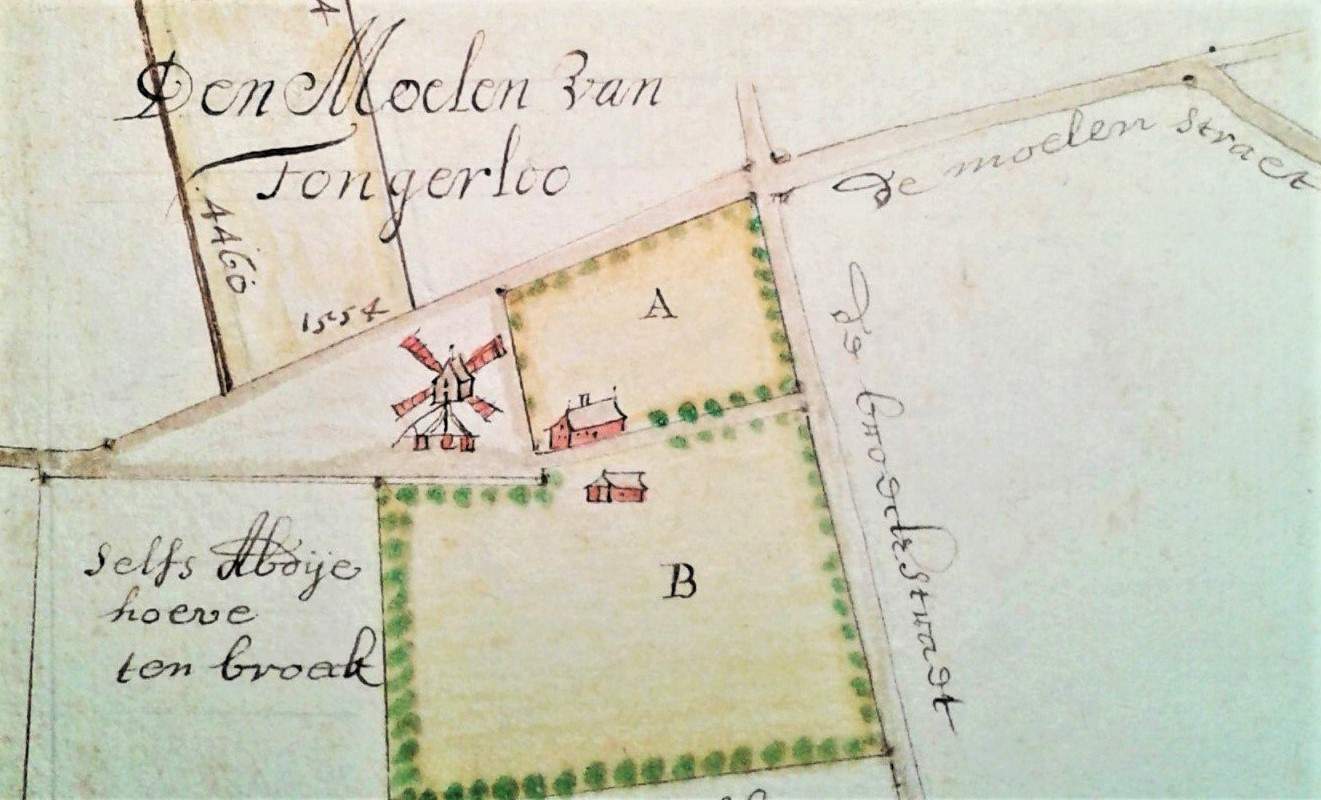 Den Moelen Van
Tongerloo
4460
1554
De moelen straet
A
B
selfs Abdije
hoeve
ten broek